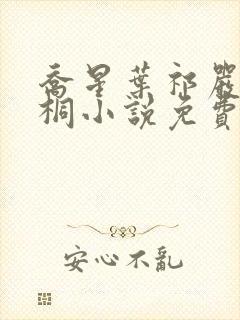 喬星葉祁嚴
桐小說免費
安心不亂